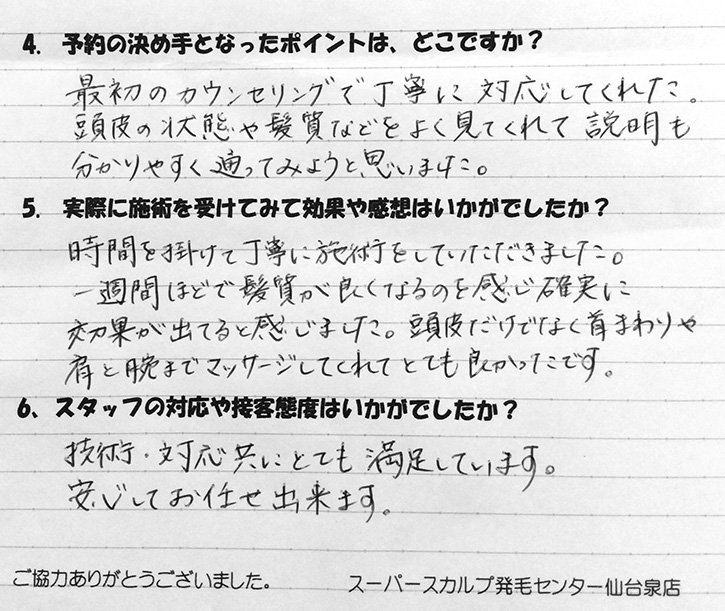 4. 予約の決め手となったポイントは、どこですか？
最初のカウンセリングで丁寧に対応してくれた。
頭皮の状態や髪質などをよく見てくれて説明も
分かりやすく通ってみようと思いました。
5. 実際に施術を受けてみて効果や感想はいかがでしたか？
時間を掛けて丁寧に施術をしていただきました。
一週間ほどで髪質が良くなるのを感じ確実に
効果が出てると感じました。頭皮だけでなく首まわりや
肩と腕までマッサージしてくれてとても良かったです。
6、スタッフの対応や接客態度はいかがでしたか？
技術・対応共にとても満足しています。
安心してお任せ出来ます。
ご協力ありがとうございました。 スーパースカルプ発毛センター仙台泉店